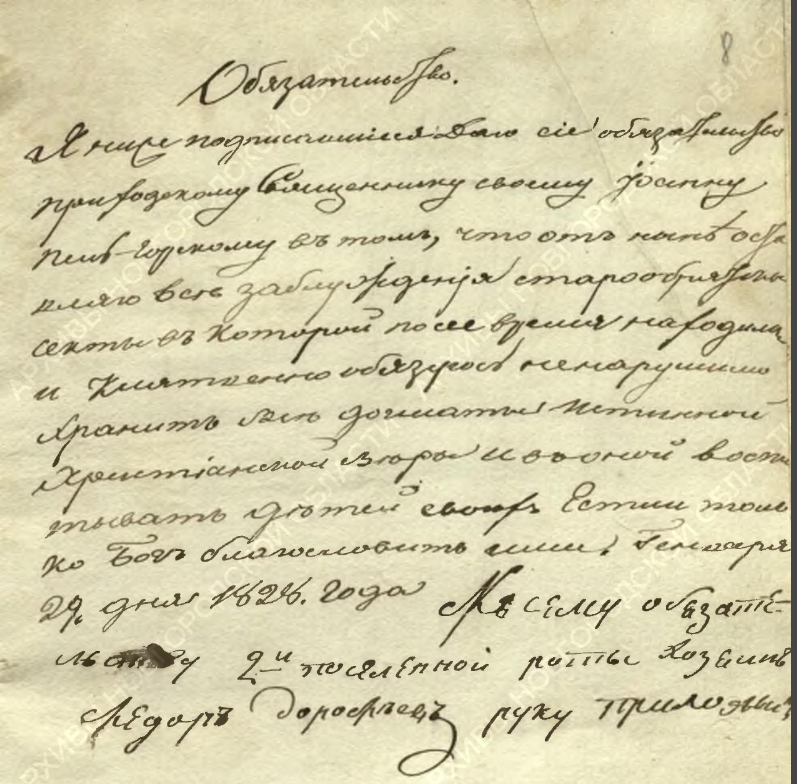 8
Обязательство.
Я ниже подписавшийся даю сіе обязательство
приходскому Священнику своему Іоанну
въ томъ, что отъ нынѣ оста
вляю всѣ заблужденія старообрядческой
секты въ которой посее время находился
и Клятвенно обязуюсь ненарушимо
хранить всѣ догматы истинной
Христіанской вѣры и въ оной воспи
тывать дѣтей своихъ Естли толь
ко Богъ благословитъ ими, Генваря
29. дня 1828. года Къ сему обязате-
льству 2й поселенной роты хозяинъ
Ѳедоръ Дорофѣевъ руку приложилъ